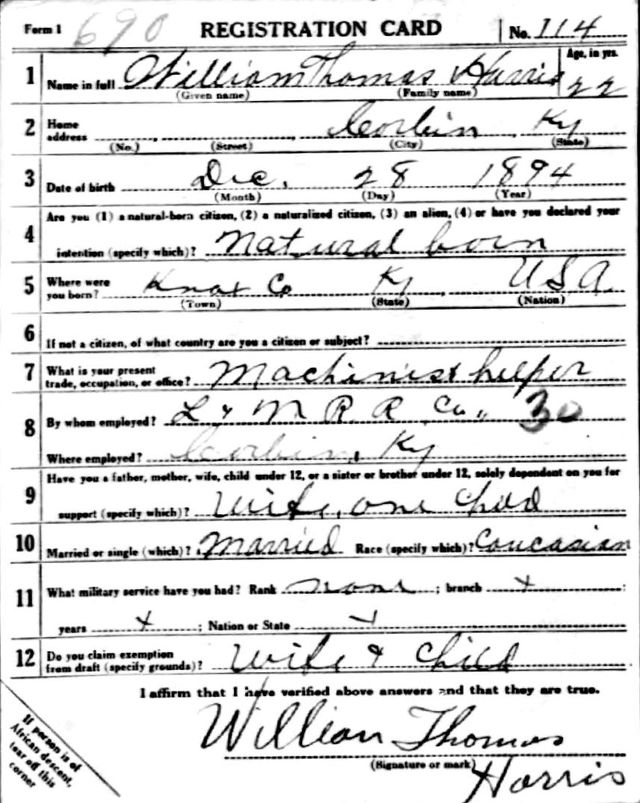 Form 1 690 REGISTRATION CARD No. 114
1 Name in full William Thomas Harris Age, in yrs. 22
(Given name) (Family name)
2 Home address Corbin, Ky
(No.) (Street) (City) (State)
3 Date of birth Dec. 28 1894
(Month) (Day) (Year)
4 Are you (1) a natural-born citizen, (2) a naturalized citizen, (3) an alien, (4) or have you declared your
intention (specify which)? Natural born
5 Where were you born? Knox Co Ky USA
(Town) (State) (Nation)
6 If not a citizen, of what country are you a citizen or subject?
7 What is your present trade, occupation, or office? Machinist helper
8 By whom employed? L & N R. R. Co., 30
Where employed? Corbin, Ky
9 Have you a father, mother, wife, child under 12, or a sister or brother under 12, solely dependent on you for
support (specify which)? Wife, one child
10 Married or single (which)? Married Race (specify which)? Caucasian
11 What military service have you had? Rank none ; branch x ;
years x ; Nation or State
12 Do you claim exemption from draft (specify grounds)? Wife & Child
I affirm that I have verified above answers and that they are true.
William Thomas
(Signature or mark)
Harris
If person is of
African descent,
tear off this
corner